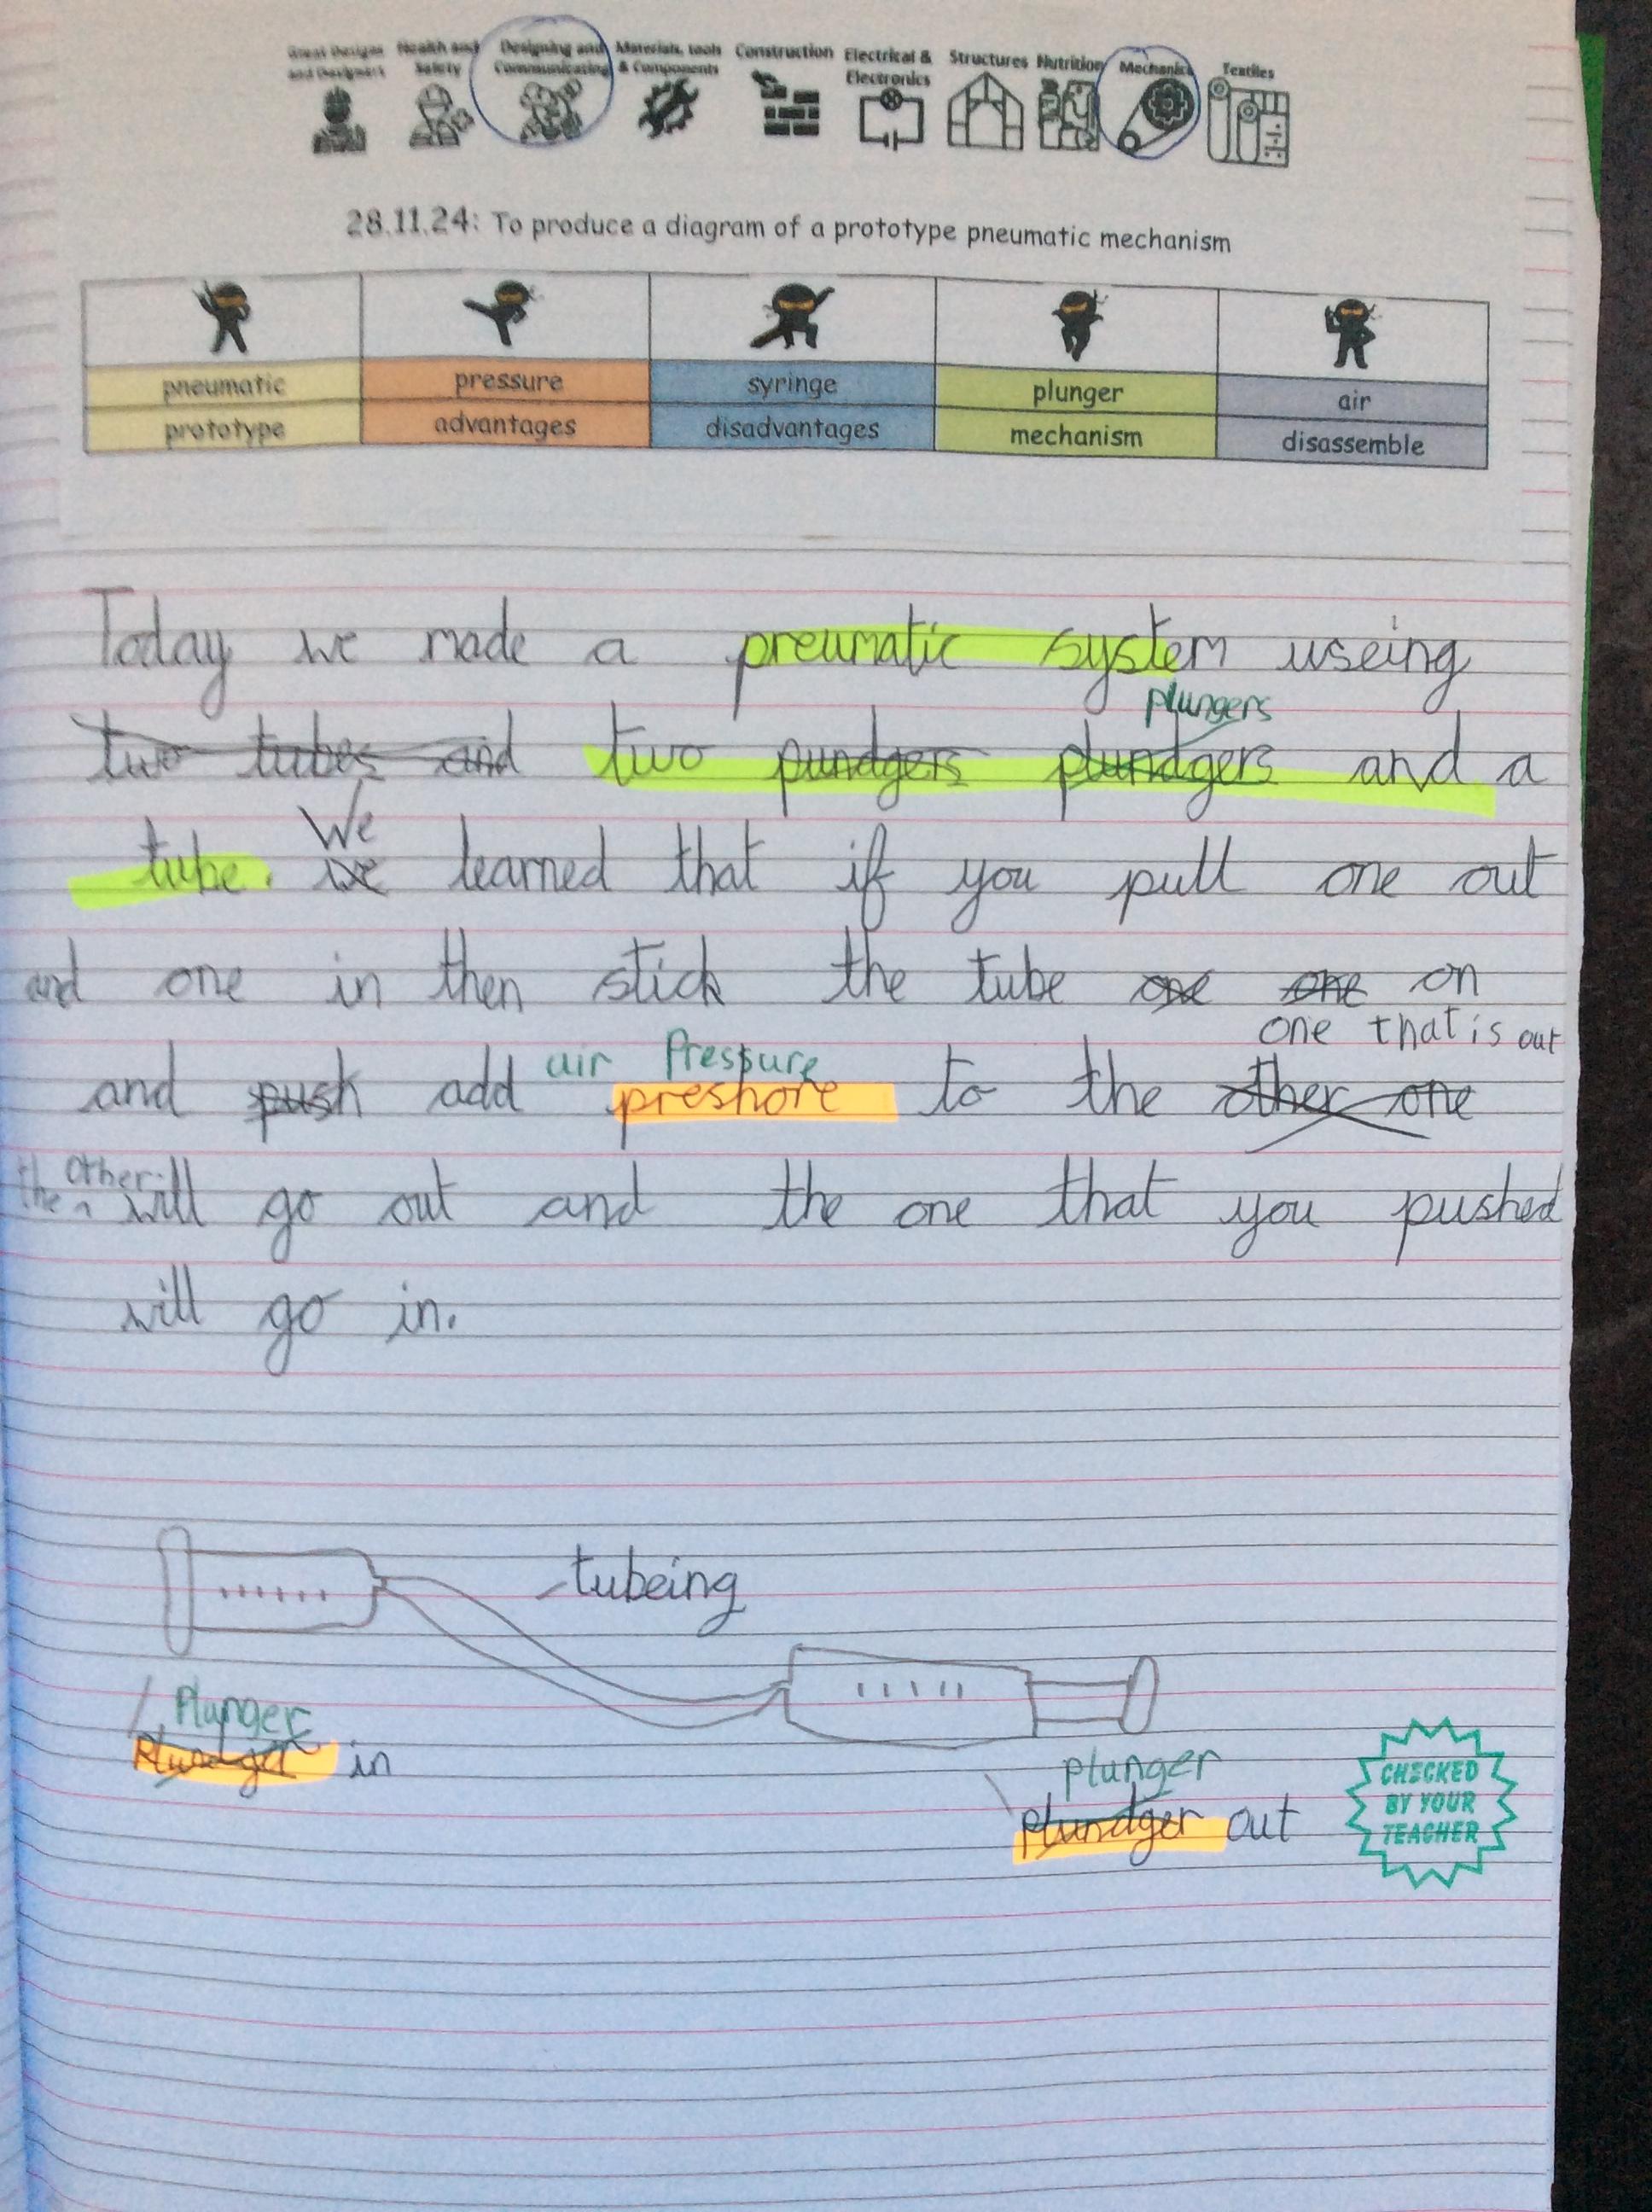 Great Designs and Designers
Health and Safety
Designing and Communicating
Materials, tools & Components
Construction
Electrical & Electronics
Structures
Nutrition
Mechanics
Textiles
28.11.24: To produce a diagram of a prototype pneumatic mechanism
pneumatic pressure syringe plunger air
prototype advantages disadvantages mechanism disassemble
Today we made a pneumatic system useing
plungers
two tubes and two pundgers plundgers and a
We
tube. we learned that if you pull one out
and one in then stick the tube one one on
one that is out
air Pressure
and push add preshore to the other one
the other will go out and the one that you pushed
will go in.
tubeing
Plunger
Plundger in
plunger
plundger out
CHECKED
BY YOUR
TEACHER